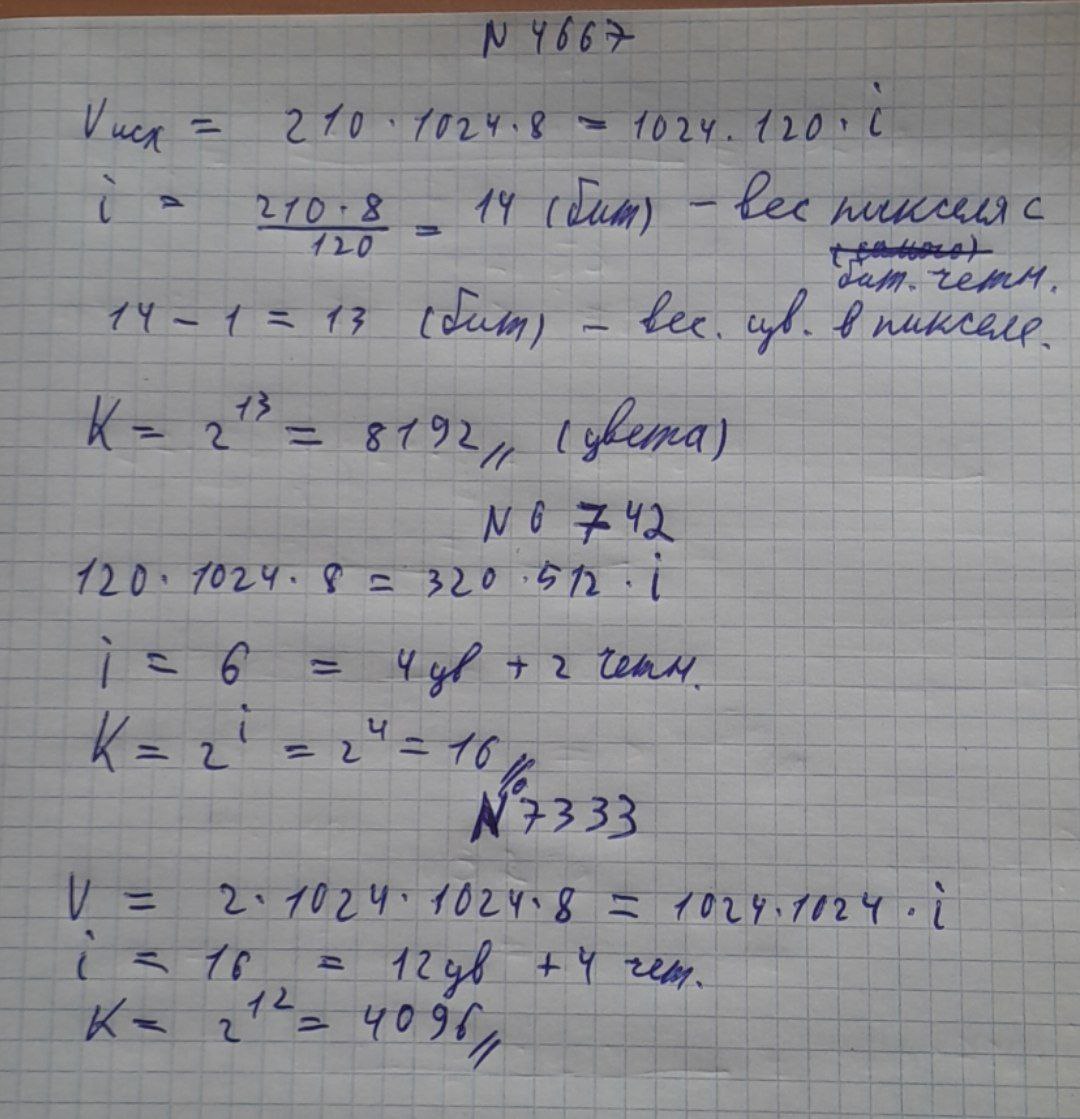 N 4667
Vисх = 210 · 1024 · 8 = 1024 · 120 · i
i = 210 · 8 / 120 = 14 (бит) – вес пикселя с
бит. четн.
14 – 1 = 13 (бит) – вес. цв. в пикселе.
K = 2^13 = 8192 (цвета)
N 6742
120 · 1024 · 8 = 320 · 512 · i
i = 6 = 4 цв + 2 четн.
K = 2^i = 2^4 = 16
N°7333
V = 2 · 1024 · 1024 · 8 = 1024 · 1024 · i
i = 16 = 12 цв + 4 чет.
K = 2^12 = 4096